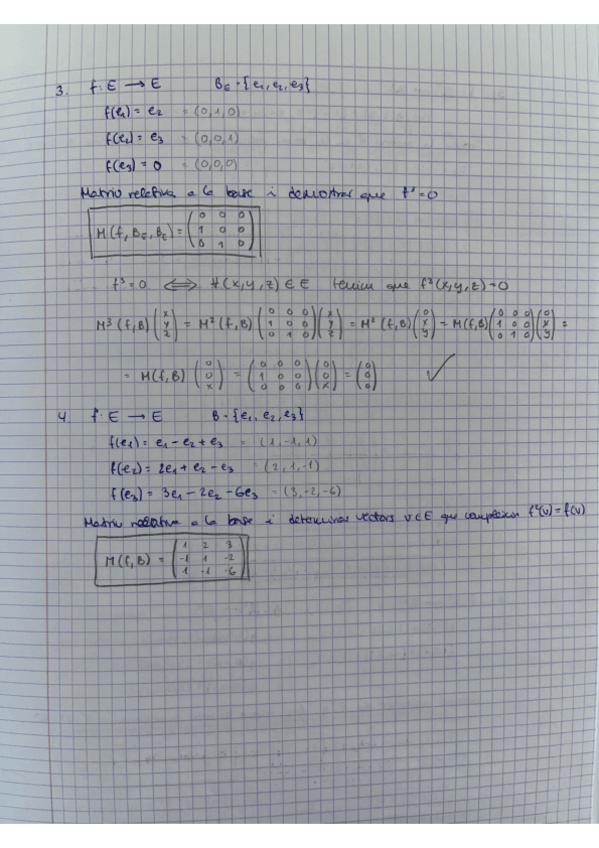 3. f: E → E     B_E = {e₁, e₂, e₃}
f(e₁) = e₂ = (0,1,0)
f(e₂) = e₃ = (0,0,1)
f(e₃) = 0 = (0,0,0)
Matriu relativa a la base i demostrar que f³=0
M(f, B_E, B_E) = (0 0 0; 1 0 0; 0 1 0)
f³=0 ⟺ ∀(x,y,z) ∈ E tenim que f³(x,y,z)=0
M³(f,B)(x; y; z) = M²(f,B)(0 0 0; 1 0 0; 0 1 0)(x; y; z) = M²(f,B)(0; x; y) = M(f,B)(0 0 0; 1 0 0; 0 1 0)(0; x; y) =
= M(f,B)(0; 0; x) = (0 0 0; 1 0 0; 0 0 0)(0; 0; x) = (0; 0; 0) ✓
4. f: E → E     B = {e₁, e₂, e₃}
f(e₁) = e₁ - e₂ + e₃ = (1,-1,1)
f(e₂) = 2e₁ + e₂ - e₃ = (2,1,-1)
f(e₃) = 3e₁ - 2e₂ - 6e₃ = (3,-2,-6)
Matriu relativa a la base i determinar vectors v∈E que compleixin f²(v) = f(v)
M(f,B) = (1 2 3; -1 1 -2; 1 -1 -6)